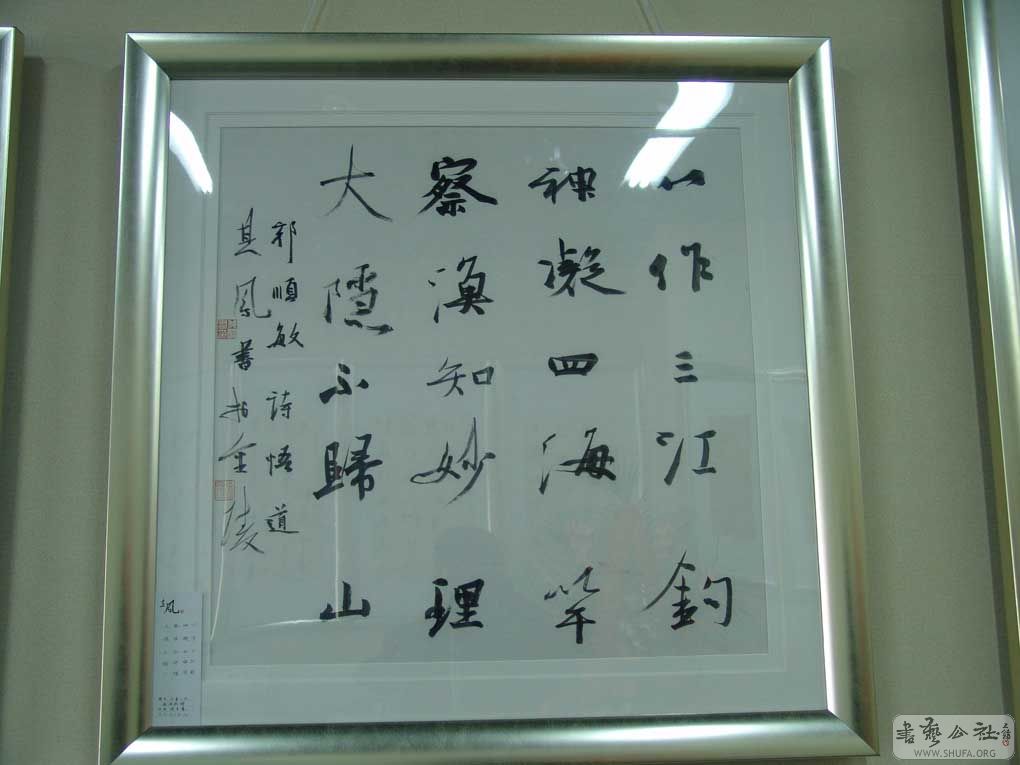 心作三江钓
神凝四海竿
察渔知妙理
大隱不歸山
郭順敏 詩 悟道
其鳳書於金陵
書藝公社
WWW.SHUFA.ORG